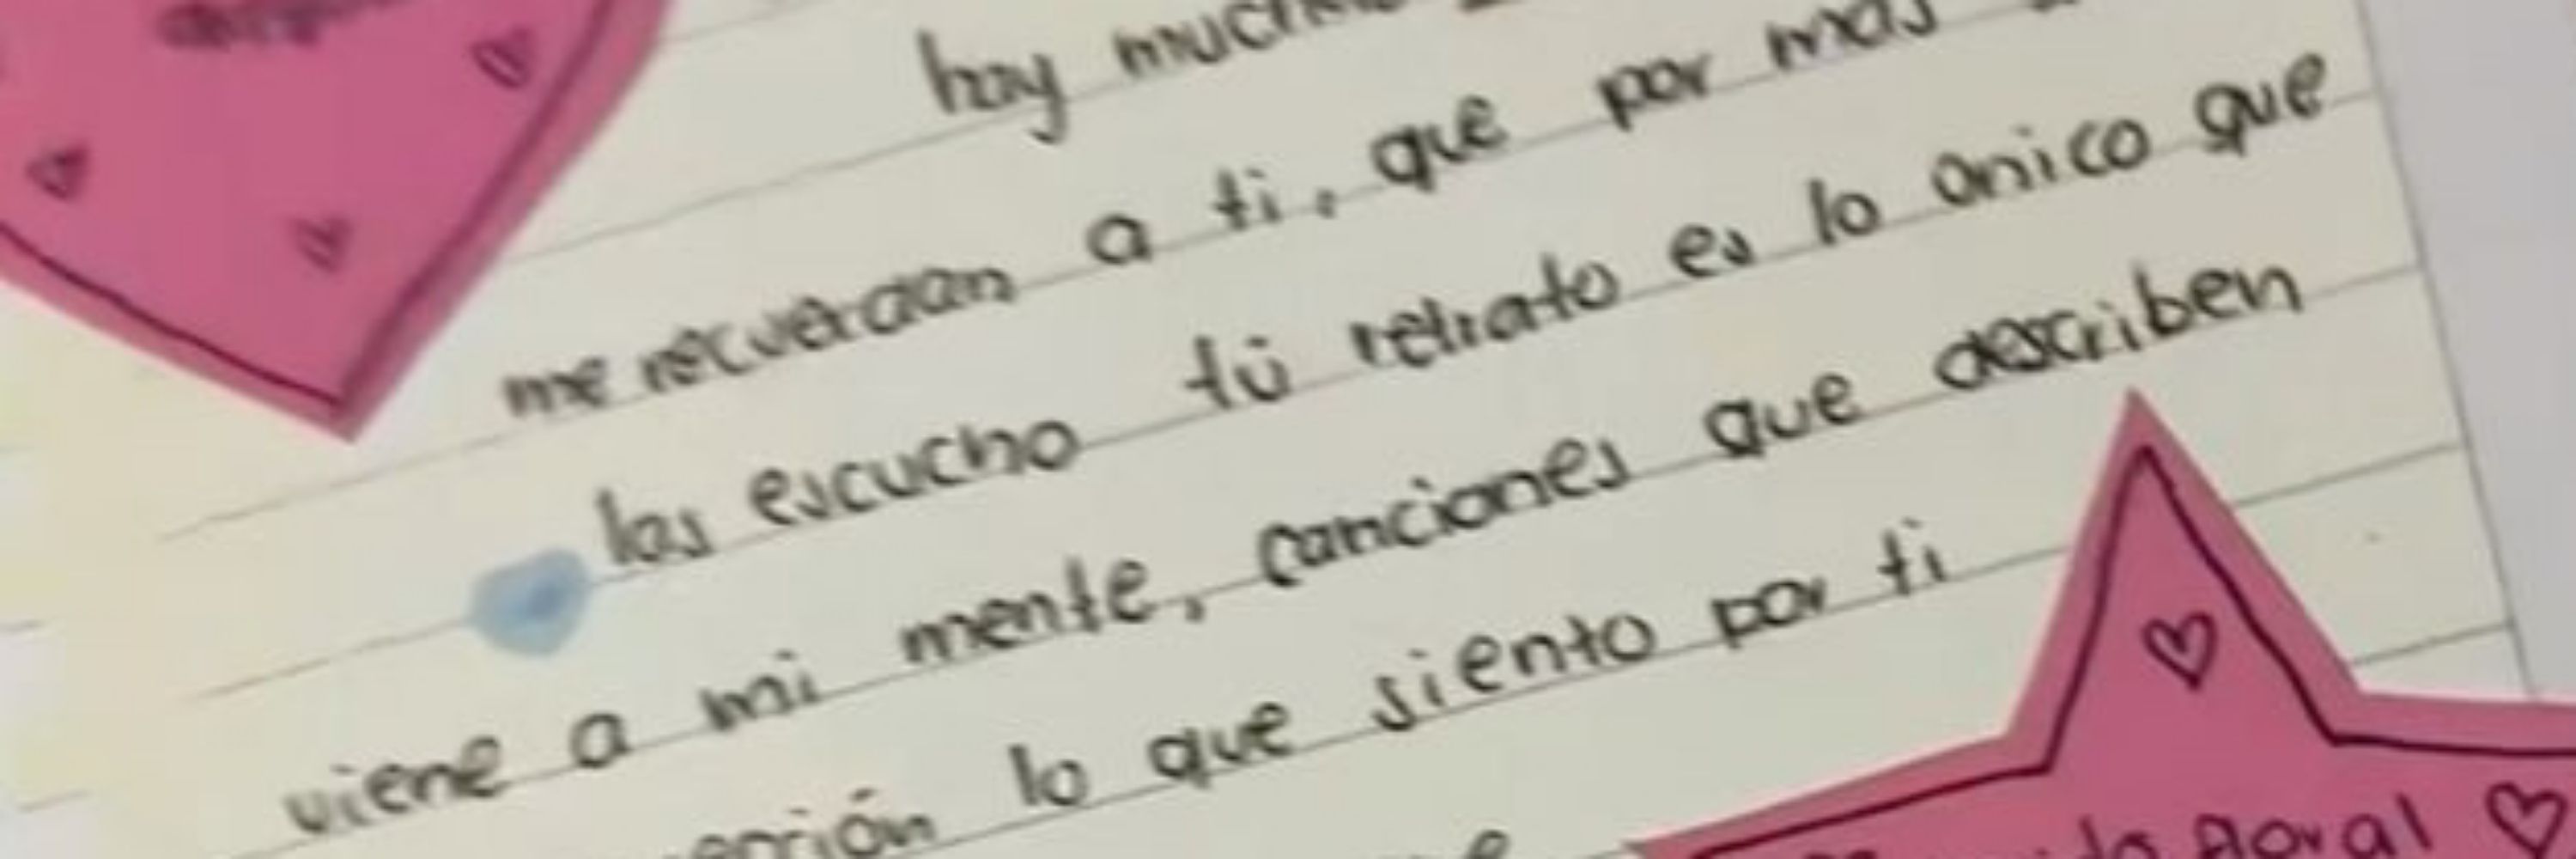 hay
me recuerdan a ti, que por más
las escucho tú retrato es lo único que
viene a mi mente, canciones que describen
lo que siento por ti
floral